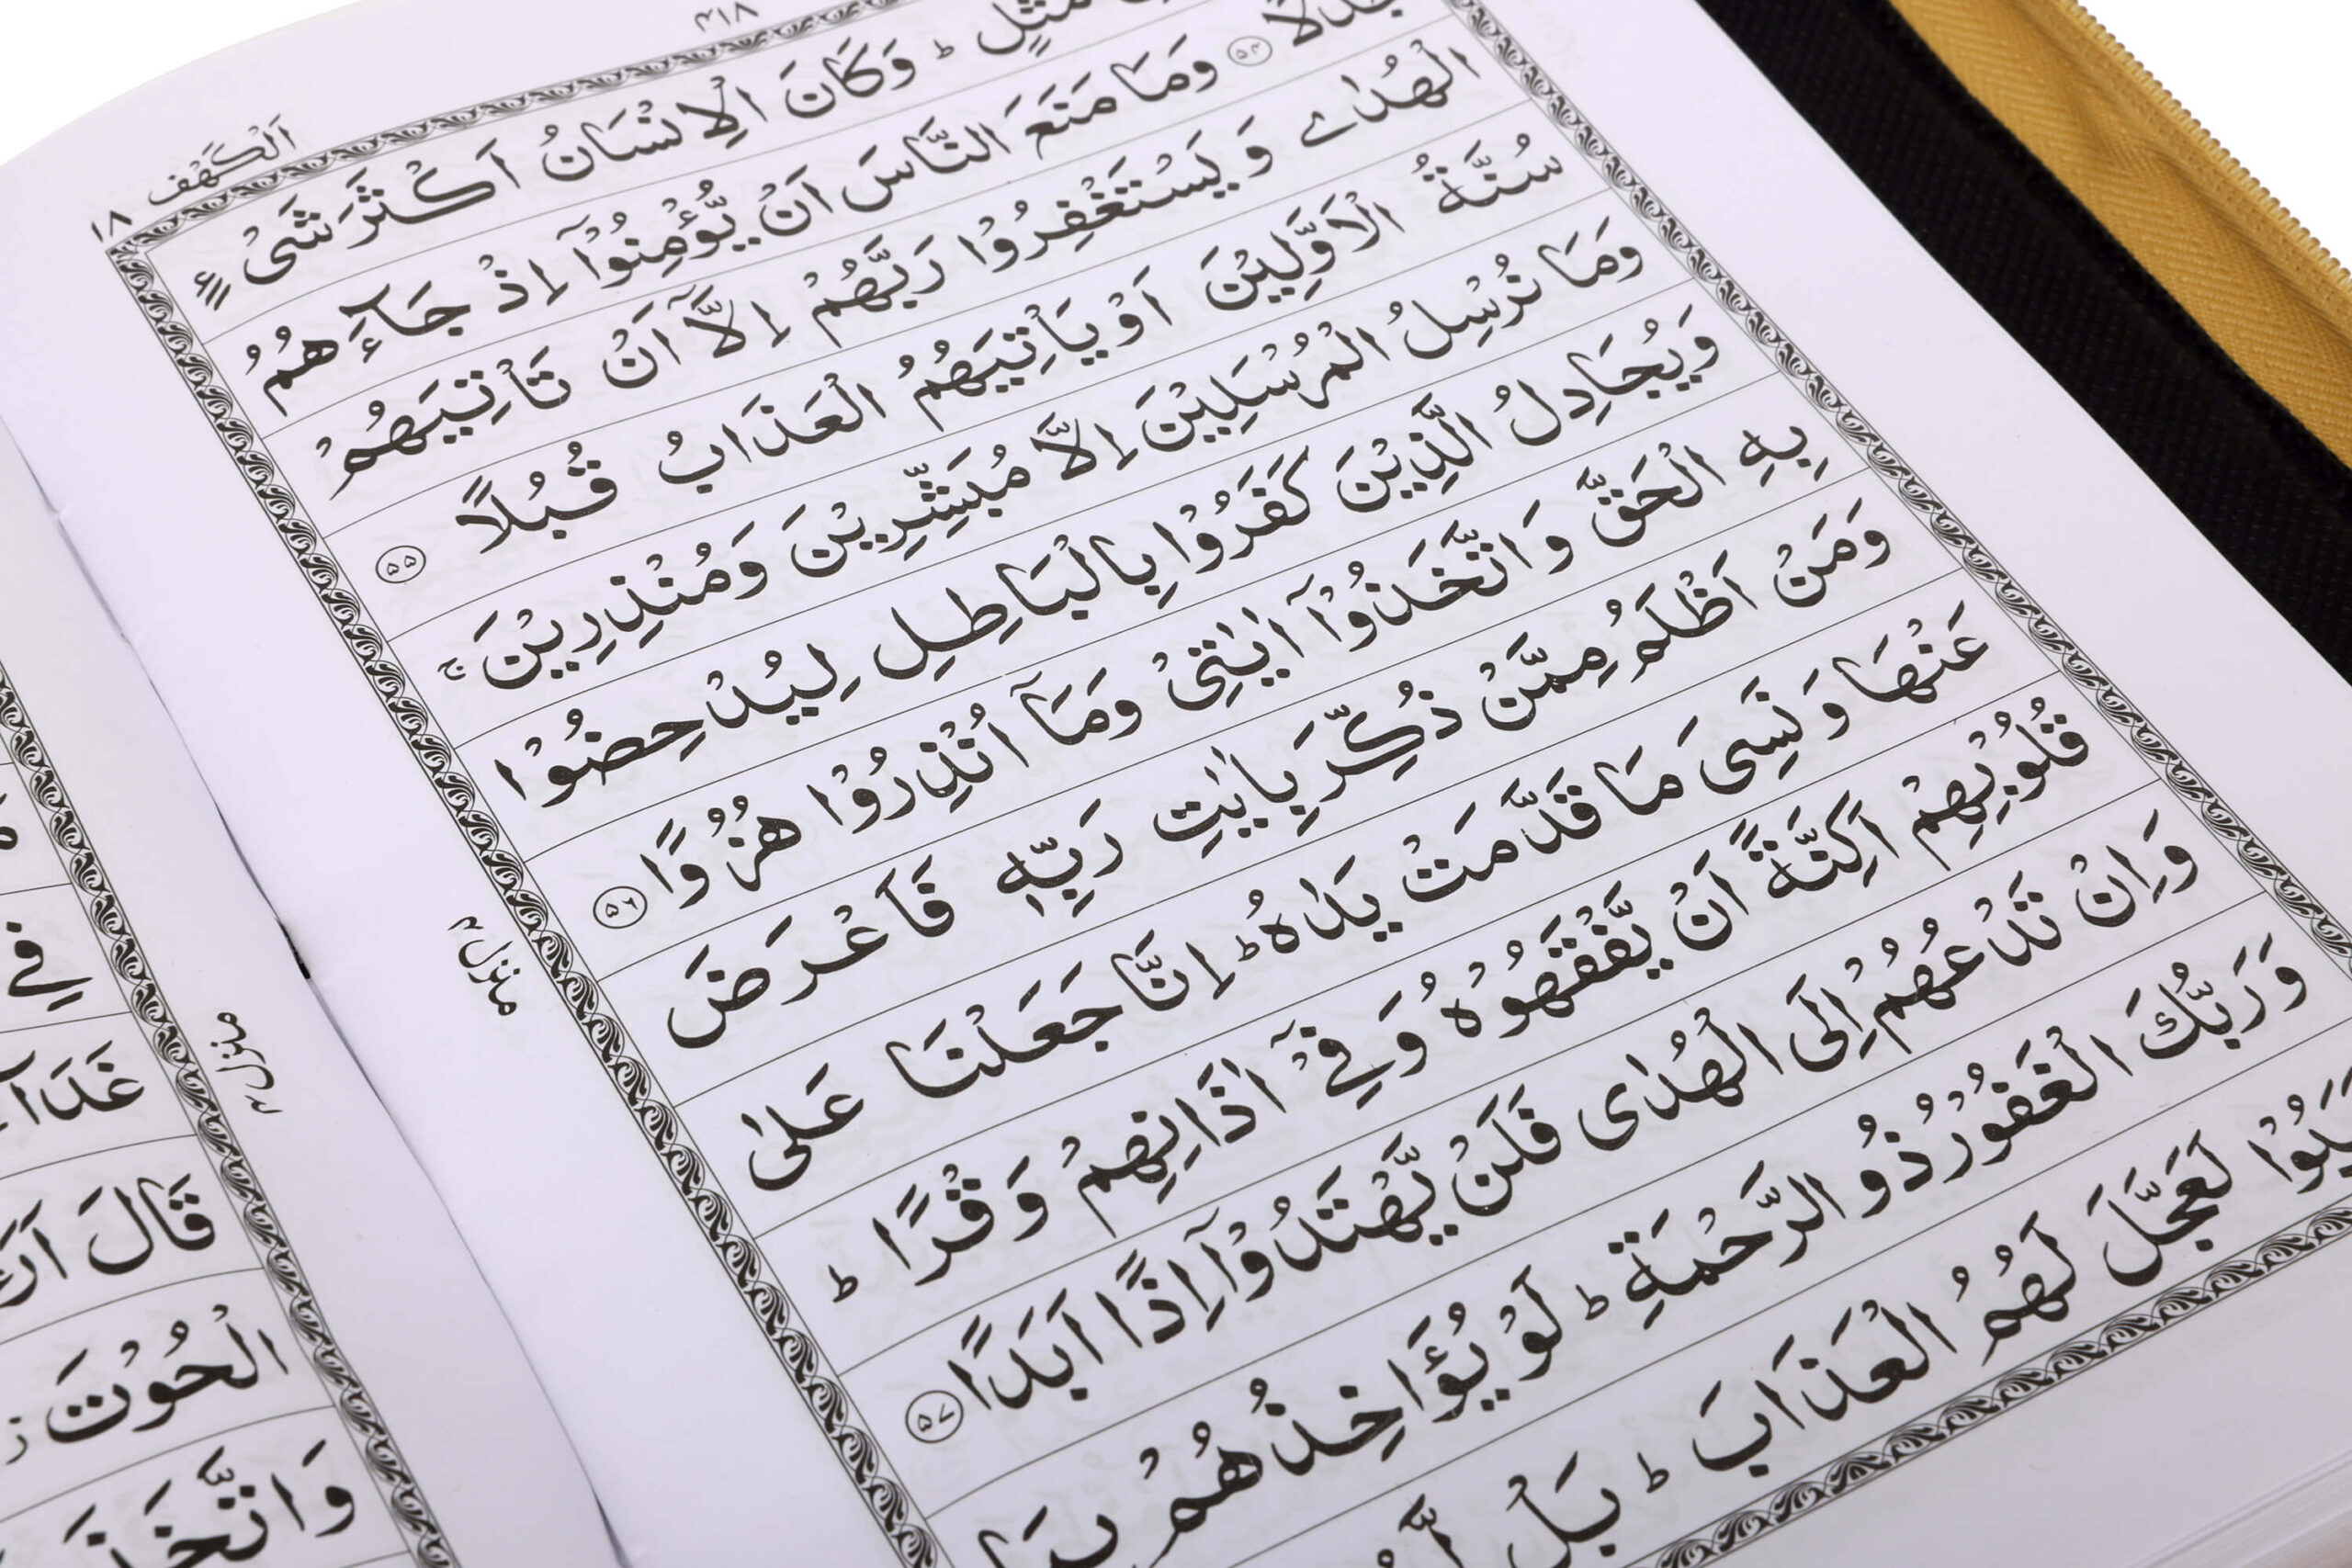 ۴۱۸
اَلْكَهْف ۱۸
مَثَلٍ ؕ وَكَانَ الْاِنْسَانُ اَكْثَرَ شَیْءٍ
جَدَلًا ۵۴ وَمَا مَنَعَ النَّاسَ اَنْ يُّؤْمِنُوْۤا اِذْ جَآءَهُمُ
الْهُدٰى وَيَسْتَغْفِرُوْا رَبَّهُمْ اِلَّاۤ اَنْ تَاْتِيَهُمْ
سُنَّةُ الْاَوَّلِيْنَ اَوْ يَاْتِيَهُمُ الْعَذَابُ قُبُلًا ۵۵
وَمَا نُرْسِلُ الْمُرْسَلِيْنَ اِلَّا مُبَشِّرِيْنَ وَمُنْذِرِيْنَ ۚ
وَيُجَادِلُ الَّذِيْنَ كَفَرُوْا بِالْبَاطِلِ لِيُدْحِضُوْا
بِهِ الْحَقَّ وَاتَّخَذُوْۤا اٰيٰتِىْ وَمَاۤ اُنْذِرُوْا هُزُوًا ۵۶
وَمَنْ اَظْلَمُ مِمَّنْ ذُكِّرَ بِاٰيٰتِ رَبِّهٖ فَاَعْرَضَ
عَنْهَا وَنَسِىَ مَا قَدَّمَتْ يَدٰهُ ؕ اِنَّا جَعَلْنَا عَلٰى
قُلُوْبِهِمْ اَكِنَّةً اَنْ يَّفْقَهُوْهُ وَفِىْۤ اٰذَانِهِمْ وَقْرًا ؕ
وَاِنْ تَدْعُهُمْ اِلَى الْهُدٰى فَلَنْ يَّهْتَدُوْۤا اِذًا اَبَدًا ۵۷
وَرَبُّكَ الْغَفُوْرُ ذُو الرَّحْمَةِ ؕ لَوْ يُؤَاخِذُهُمْ
لَعَجَّلَ لَهُمُ الْعَذَابَ ؕ بَلْ
منزل ۴
فِى
غَدَآ
قَالَ
الْحُوْتَ
وَاتَّخَذَ
منزل ۴